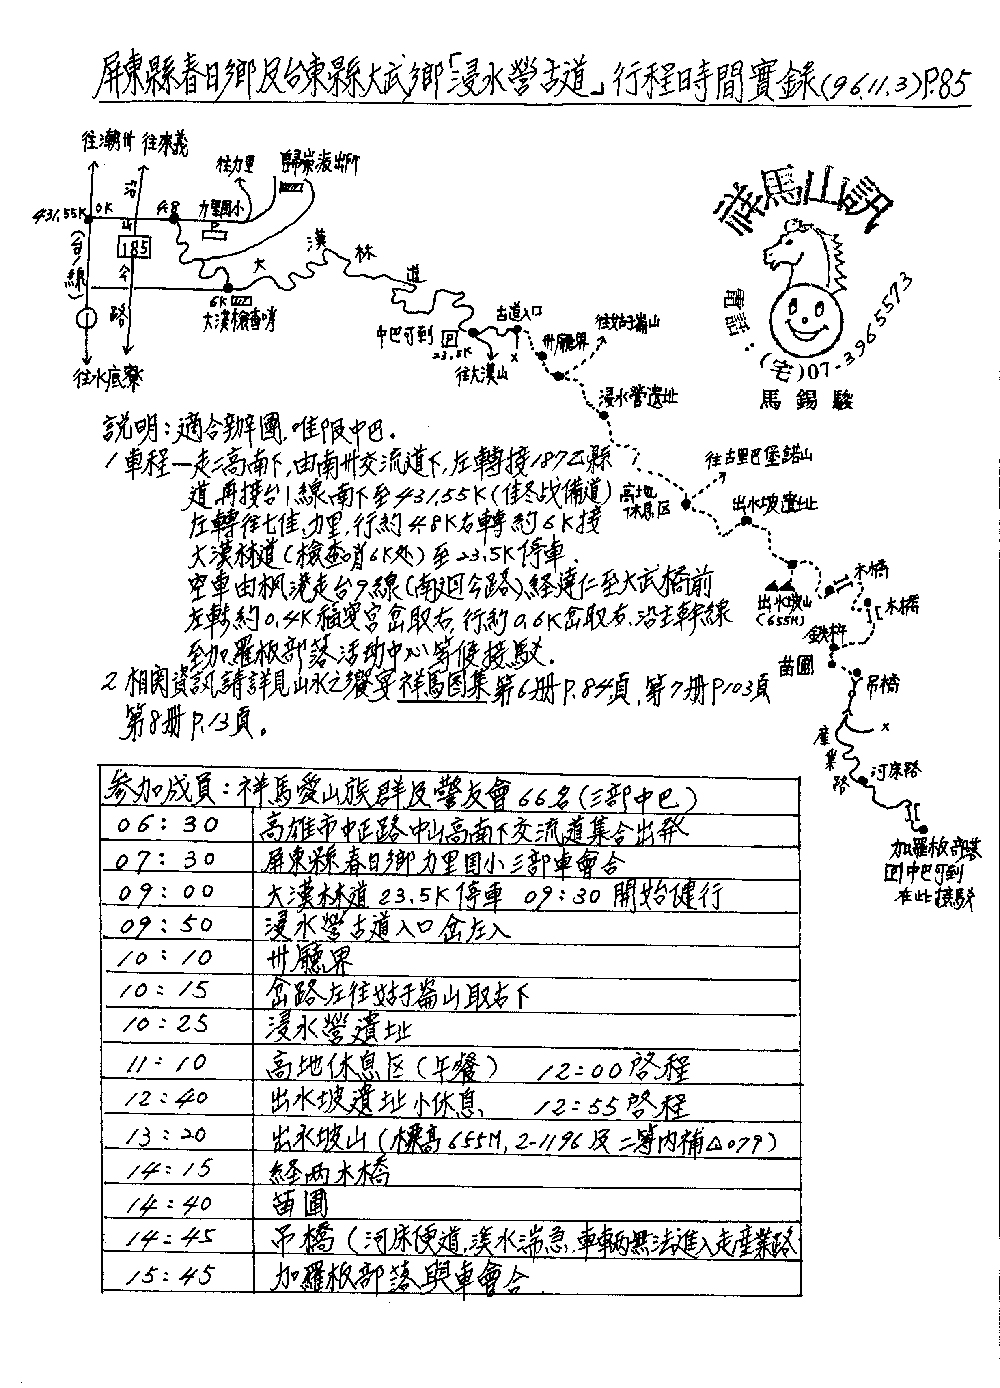 屏東縣春日鄉及台東縣大武鄉「浸水營古道」行程時間實錄(96.11.3)P.85
往潮州 往來義
往力里 歸崇派出所
431.55K 0K 沿 4.8 力里國小
P
山 185 公路
(台1線)
大漢林道
6K
大漢檢查哨
中巴可到 P 23.5K
往大漢山
古道入口
x
州廳界
往姑子崙山
浸水營遺址
往水底寮
祥馬山訊
電話:(宅)07-3965573
馬錫駿
往古里巴堡諾山
高地休息区
出水坡遺址
出水坡山
(655M)
木橋
木橋
鉄杆
苗圃
吊橋
x
產業路
河床路
加羅板部落
P 中巴可到
在此接駁
說明:適合辦團,唯限中巴.
1 車程一走二高南下,由南州交流道下,左轉接187乙縣
道,再接台1線,南下至431.55K(佳冬战備道)
左轉往七佳,力里,行約4.8K右轉約6K接
大漢林道(檢查哨6K処)至23.5K停車.
空車由枫港走台9線(南迴公路)経達仁至大武橋前
左轉約0.4K福安宮岔取右,行約0.6K岔取右,沿主幹線
至加羅板部落活动中心等候接駁.
2 相関資訊請詳見山水之饗宴祥馬图集第6册P.84頁,第7册P.103頁
第8册P.13頁。
参加成員:祥馬愛山族群及警友會66名(三部中巴)
06:30 高雄市中正路中山高南下交流道集合出発
07:30 屏東縣春日鄉力里国小三部車會合
09:00 大漢林道23.5K停車 09:30開始健行
09:50 浸水營古道入口岔左入
10:10 州廳界
10:15 岔路左往姑子崙山取右下
10:25 浸水營遺址
11:10 高地休息区(午餐) 12:00啓程
12:40 出水坡遺址小休息 12:55啓程
13:20 出水坡山(標高655M,2-1196及二等內補△079)
14:15 経两木橋
14:40 苗圃
14:45 吊橋(河床便道,溪水湍急,車輛無法進入走產業路
15:45 加羅板部落與車會合.